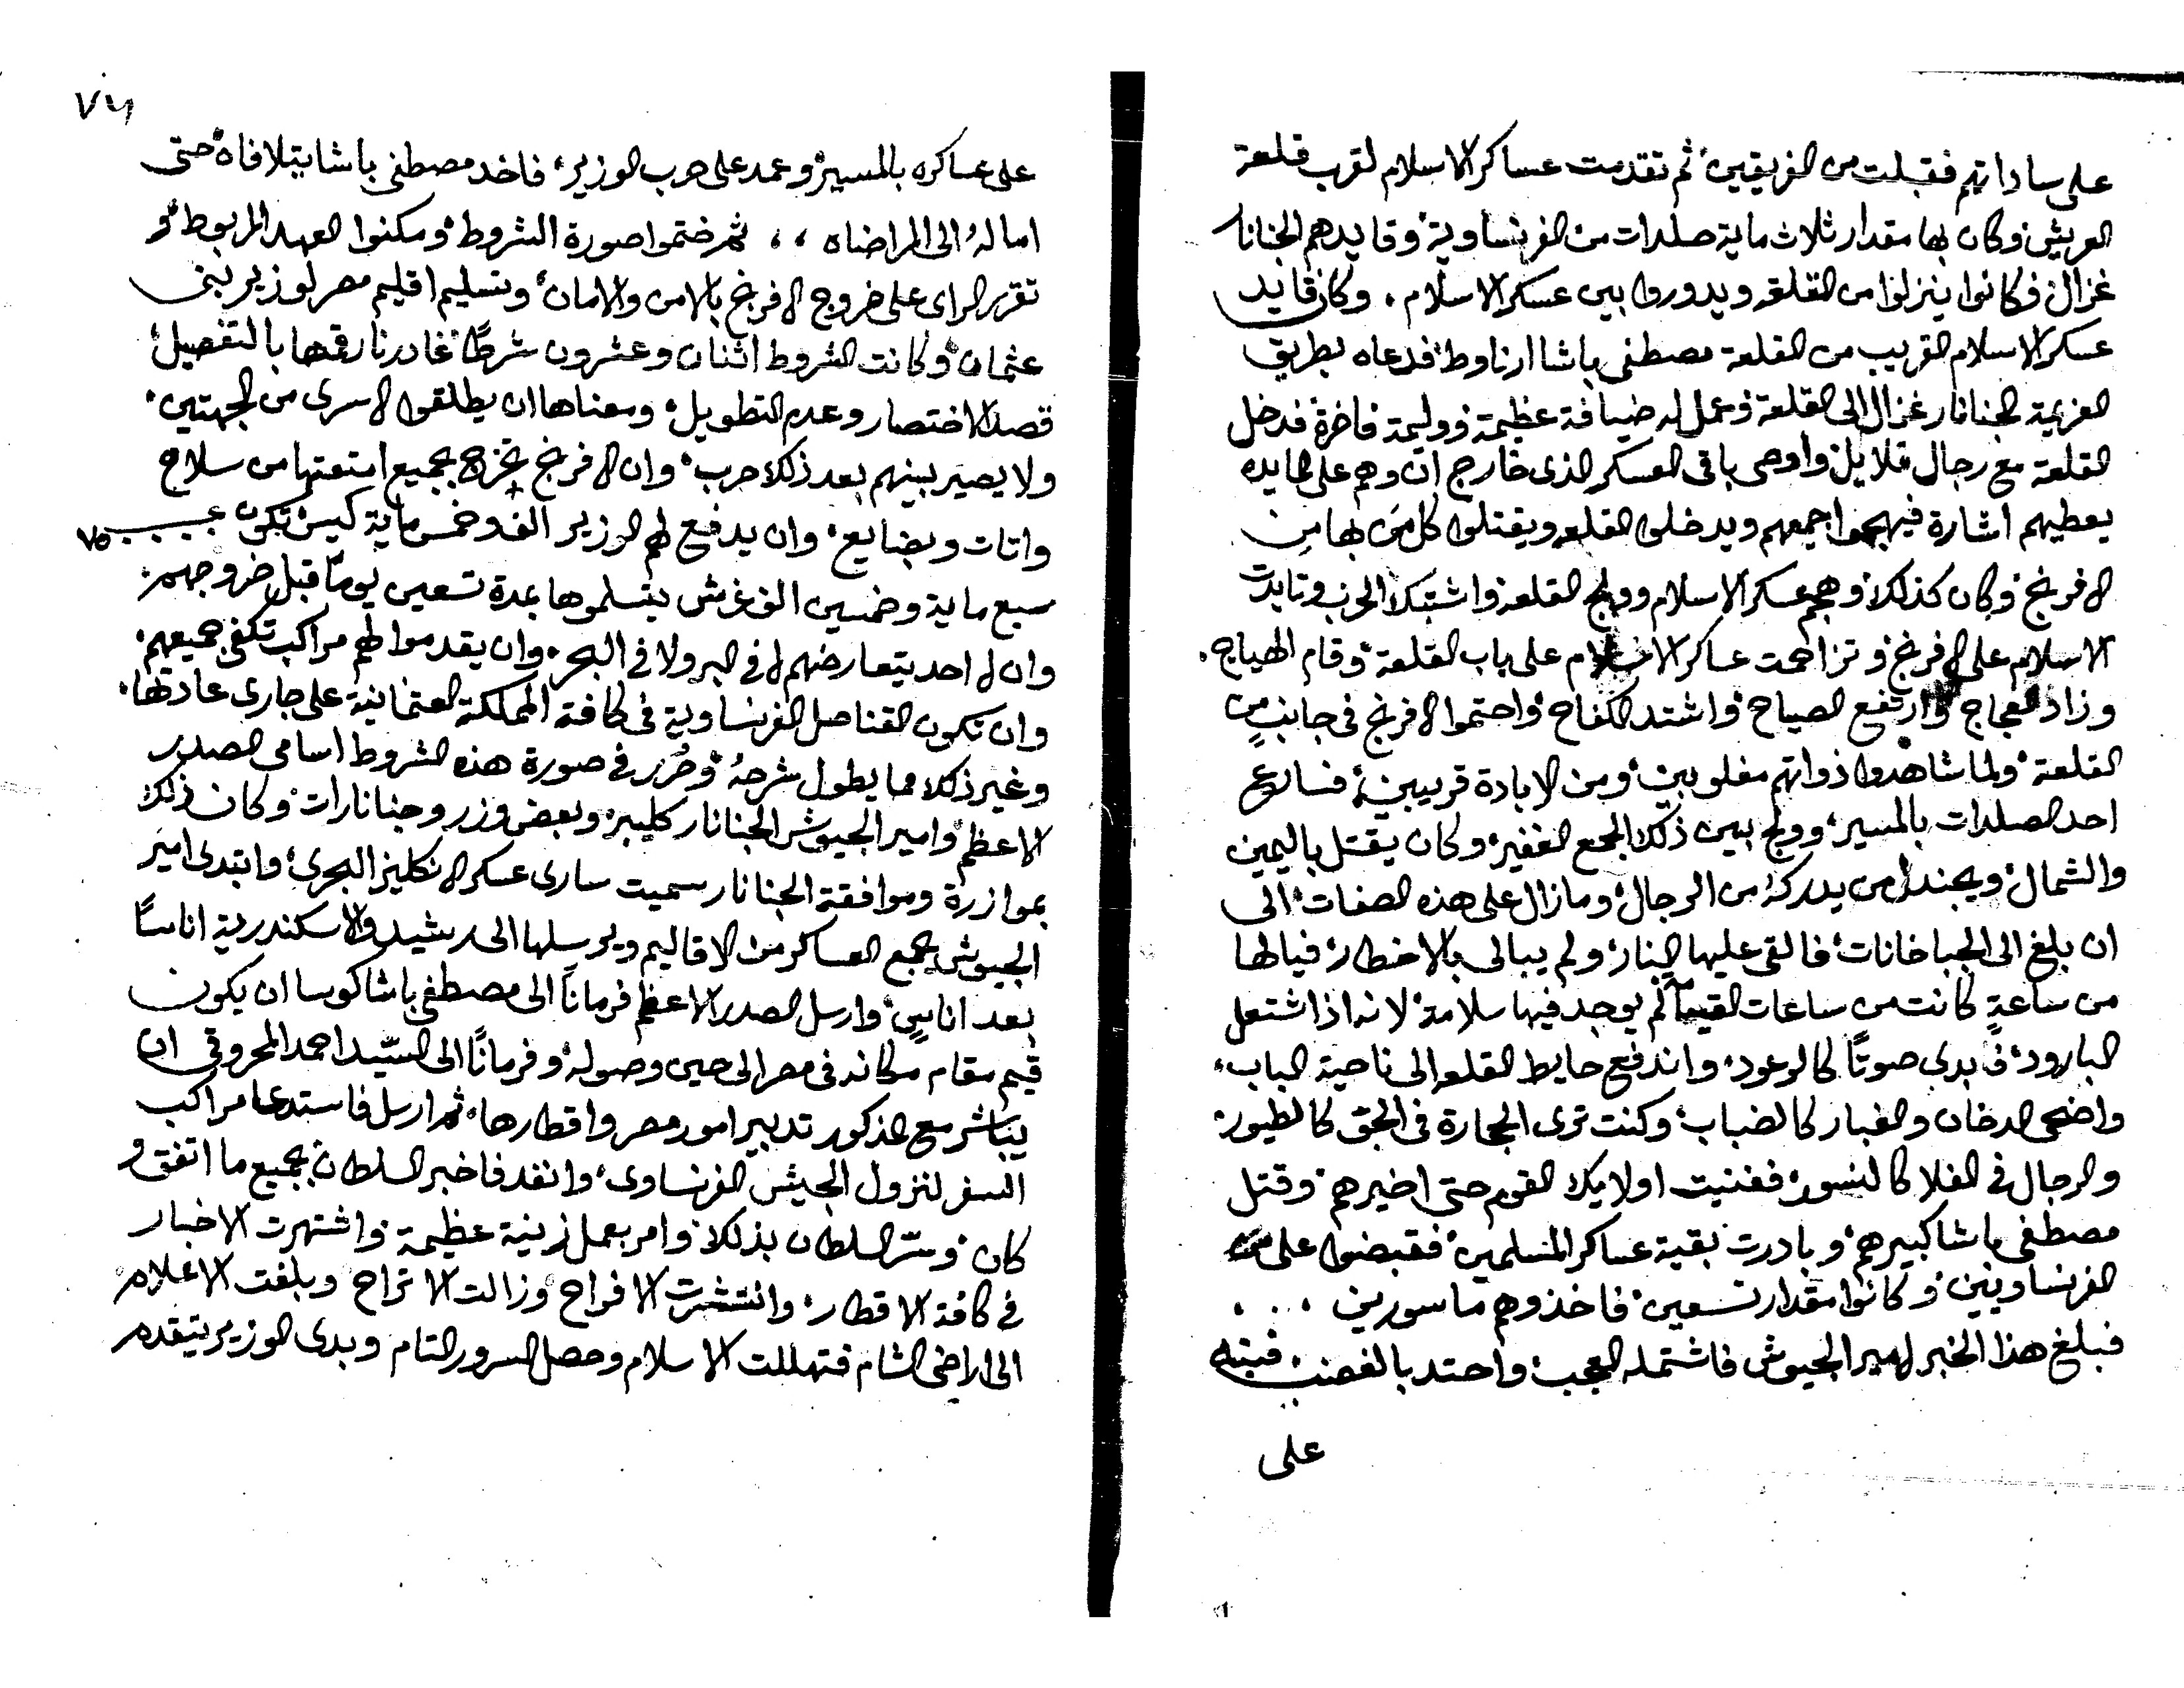 على ساداتهم فقبلت من الفريقين، ثم تقدمت عساكر الاسلام لقرب قلعة
العريش، وكان بها مقدار ثلاث ماية صلدات من الفرنساوية، وقايدهم الجنانار
غزال، فكانوا ينزلوا من القلعه ويدوروا بين عسكر الاسلام، وكان قايد
عسكر الاسلام القريب من القلعة مصطفى باشا ارناوط، فدعاه بطريق
العزيمة الجنانار غزال الى القلعة، وعمل له ضيافة عظيمة، ووليمة فاخرة، فدخل
القلعة مع رجال قلايل، واوصى باقى العسكر الذى خارج ان وهم على المايده
يعطيهم اشارة فيهجموا جمعهم ويدخلوا القلعه ويقتلوا كل من بها من
الافرنج، وكان كذلك، وهجم عسكر الاسلام وولج القلعه، واشتبك الحرب، وتايدت
الاسلام على الافرنج، وتزاحمت عساكر الاسلام على باب القلعة، وقام الهياج،
وزاد العجاج، وارتفع الصياح، واشتد الكفاح، واحتموا الافرنج فى جانبٍ من
القلعة، ولما شاهدوا ذواتهم مغلوبين، ومن الابادة قريبين، فسارع
احد الصلدات بالمسير، وولج بين ذلك الجمع الغفير، وكان يقتل باليمين
والشمال، ويجندل من يدركهُ من الرجال، ومازال على هذه الصفات، الى
ان بلغ الى الجباخانات، فالقى عليها النار، ولم يبالى بالاخطار، فيالها
من ساعةٍ كانت من ساعات القيمة لم يوجد فيها سلامة، لانه اذا اشتعل
البارود، فى بدى صوتًا كالرعود، واندفع حايط القلعه الى ناحية الباب،
واضحى الدخان والغبار كالضباب، وكنت ترى الحجارة فى الجو كالطيور،
والرجال فى الفلا كالنسور، ففنيت اولايك القوم حتى اخيرهم، وقتل
مصطفى باشا كبيرهم، وبادرت بقية عساكر المسلمين، فقبضوا على
الفرنساويين، وكانوا مقدار تسعين، فاخذوهم ماسورين،
فبلغ هذا الخبر لامير الجيوش فاشتمله العجب، واحتد بالغضب، فنبه
على
٧٦
على عساكره بالمسير، وعمد على حرب الوزير، فاخد مصطفى باشا يتلافاه، حتى
امالهُ الى المراضاه، ثم ختموا صورة الشروط، ومكنوا العهد المربوط، و
تقرر الراى على خروج الافرنج بالامن والامان، وتسليم اقليم مصر لوزير بنى
عثمان، وكانت الشروط اثنان وعشرون شرطًا، غادرنا رقمها بالتفصيل،
قصد الاختصار وعدم التطويل، ومعناها ان يطلقوا الاسرى من الجهتين،
ولا يصير بينهم بعد ذلك حرب، وان الافرنج تخرج بجميع امتعتها من سلاح
واثاث وبضايع، وان يدفع لهم الوزير الف وخمس ماية كيس، تكون عـــ ٧٥٠
سبع ماية وخمسين الف غرش يتسلموها بمدة تسعين يومًا قبل خروجهم،
وان لا احد يتعارضهم لا فى البر ولا فى البحر، وان يقدموا لهم مراكب تكفى جميعهم،
وان تكون القناصل الفرنساوية فى كافة المملكة العثمانية على جارى عادتها،
وغير ذلك مما يطول شرحهُ، وحُرر فى صورة هذه الشروط اسامى الصدر
الاعظم، وامير الجيوش الجنانار كليبر، وبعض وزر وجنانارات، وكان ذلك
بموازرة وموافقة الجنانار سميت سارى عسكر الانكليز البحرى، وابتدى امير
الجيوش يجمع العساكر من الاقاليم ويرسلها الى رشيد والاسكندرية اناسًا
بعد اناسٍ، وارسل الصدر الاعظم فرمانًا الى مصطفى باشا كوسا ان يكون
قيم مقام مكانه فى مصر الى حين وصوله، وفرمانًا الى السّيد احمد المحروقى ان
يبَاشر مع المذكور تدبير امور مصر واقطارها، ثم ارسل فاستدعا مراكب
السفر لنزول الجيش الفرنساوى، وانفد فاخبر السلطان بجميع ما اتفق، و
كان، وسُرّ السلطان بذلك، وامر بعمل زينة عظيمة، واشتهرت الاخبار
فى كافة الاقطار، وانتشرت الافراح، وزالت الاتراح، وبلغت الاعلام
الى اراضى الشام فتهللت الاسلام وحصل السرور التام، وبدى الوزير يتيقدم